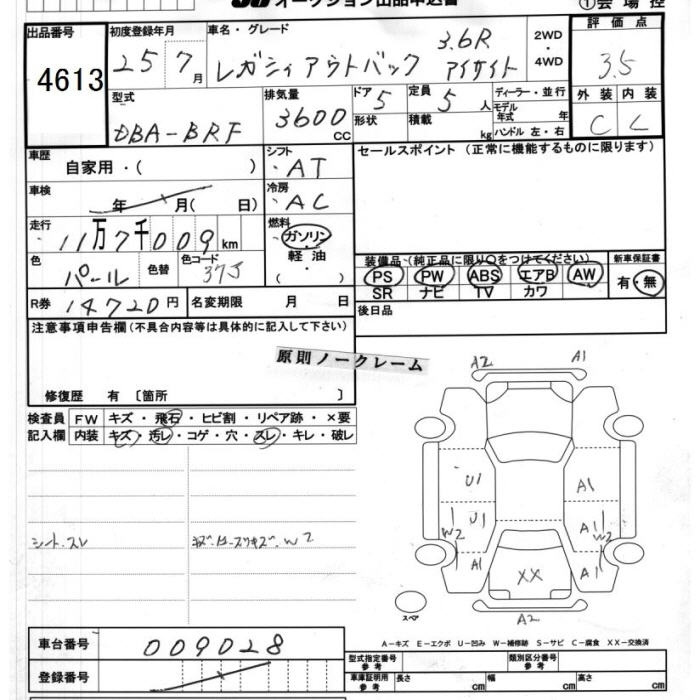 オークション出品申込書 ①会場控
出品番号 初度登録年月 車名・グレード 2WD ・ 4WD 評価点
4613 25 7月 レガシィアウトバック 3.6R アイサイト 3.5
型式 排気量 ドア 定員 ディーラー・並行 外装 内装
DBA-BRF 3600 CC 5 5人 モデル年式 年 C C
形状 積載 kg ハンドル 左・右
車歴 自家用・( ) シフト ・AT セールスポイント (正常に機能するものに限ります)
車検 年 月( 日) 冷房 ・AC
走行 11万7千009km 燃料 ・ガソリン 軽油 ・( )
色 パール 色替 色コード 37J
装備品 (純正品に限り○をつけてください) 新車保証書
PS PW ABS エアB AW 有・無
SR ナビ TV カワ
R券 14720円 名変期限 月 日 後日品
注意事項申告欄(不具合内容等は具体的に記入して下さい)
原則ノークレーム
修復歴 有 〔箇所 〕
検査員 FW キズ・飛石・ヒビ割・リペア跡・×要
記入欄 内装 キズ・汚レ・コゲ・穴・スレ・キレ・破レ
A2 A1
U1 A1
W2 U1 A1 W2
A1 XX A1
シート.スレ
スペア A2
A-キズ E-エクボ U-凹み W-補修跡 S-サビ C-腐食 XX-交換済
車台番号 009028
型式指定番号 参考 類別区分番号 参考
登録番号 車庫証明用 参考 長さ cm 幅 cm 高さ cm